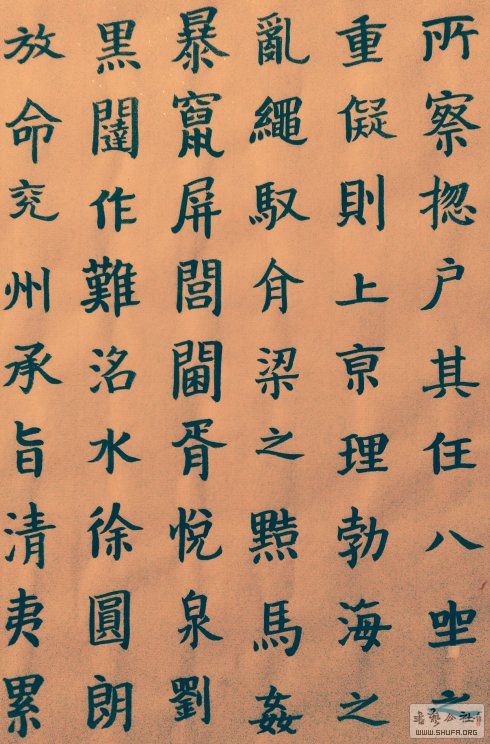 所察揔户其任八坐之
重儗則上亰理勃海之
亂繩馭梁之黠馬姦
暴竄屏閭閻胥悅泉劉
黑闥作難洺水徐圓朗
放命兖州承旨清夷累
書藝公社
WWW.SHUFA.ORG